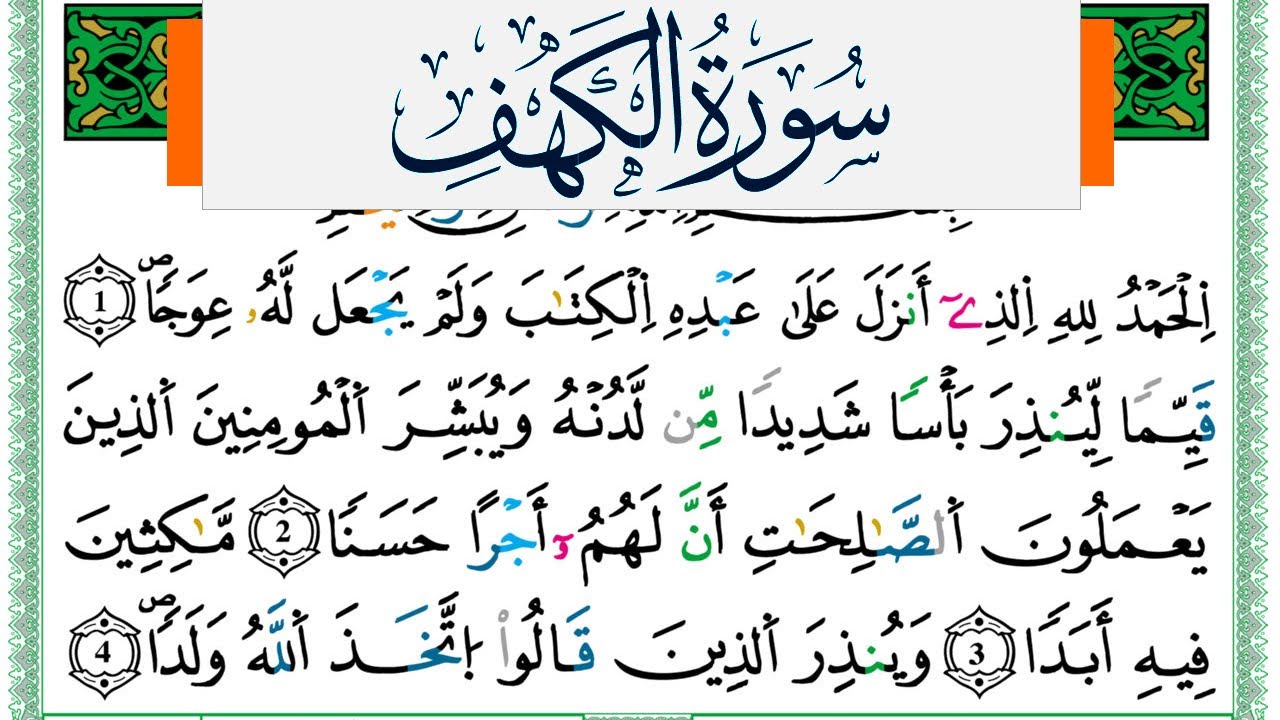 سُورَةُ الْكَهْفِ
اِ۬لْحَمْدُ لِلهِ اِ۬لذِےٓ أَنزَلَ عَلَىٰ عَبْدِهِ اِ۬لْكِتَٰبَ وَلَمْ يَجْعَل لَّهُۥ عِوَجاًۖ 1
قَيِّماً لِّيُنذِرَ بَأْساً شَدِيداً مِّن لَّدُنْهُ وَيُبَشِّرَ اَ۬لْمُومِنِينَ اَ۬لذِينَ
يَعْمَلُونَ اَ۬لصَّٰلِحَٰتِ أَنَّ لَهُمُۥٓ أَجْراً حَسَناً 2 مَّٰكِثِينَ
فِيهِ أَبَداً 3 وَيُنذِرَ اَ۬لذِينَ قَالُواْ اُ۪تَّخَذَ اَ۬للَّهُ وَلَداًۖ 4